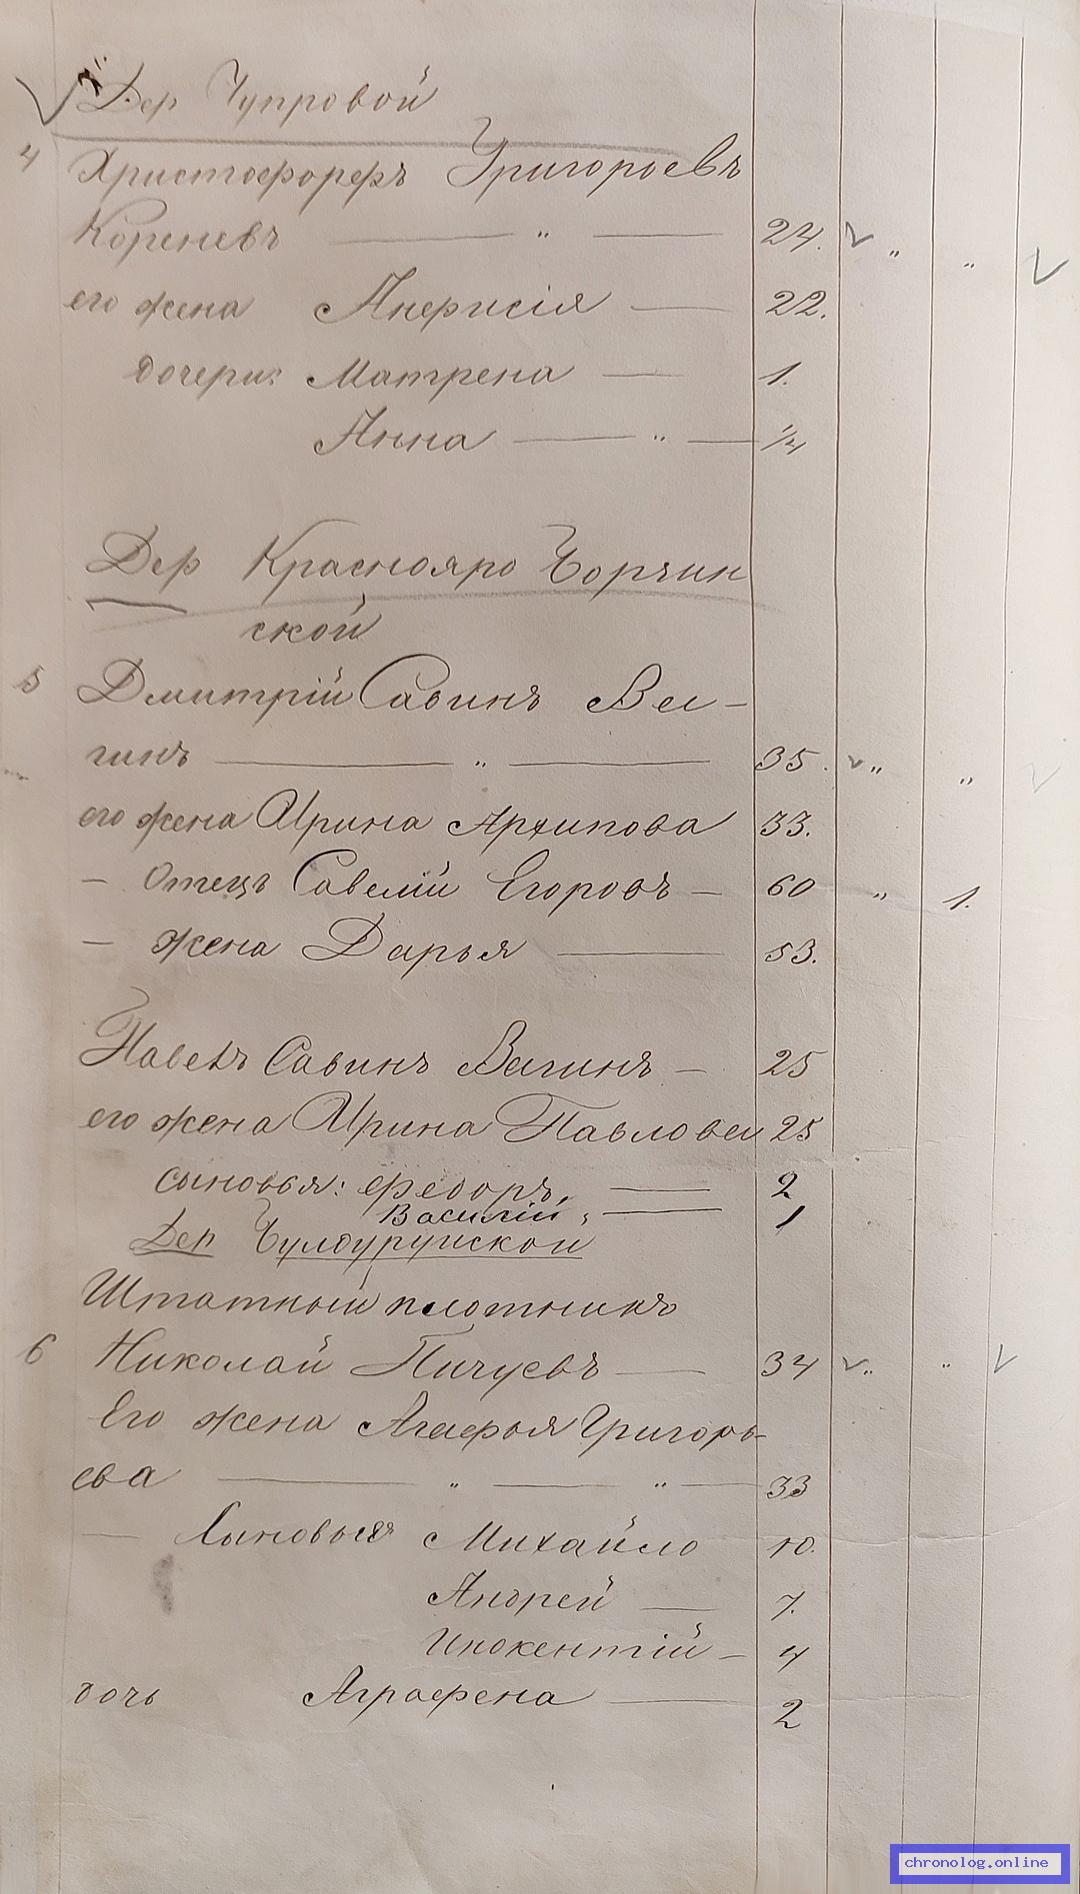 Дер Чупровой
4 Христофореръ Григорьевъ
Кореневъ — " — 24. " "
его жена Анфисія — 22.
дочери: Матрена — 1.
Анна — " — 1/4
Дер Краснояро Борчин
ской
5 Дмитрій Савинъ Вег-
гинъ — " — 35. " "
его жена Ирина Архипова 33.
— Отецъ Савелій Егоровъ — 60 " 1.
— жена Дарья — 53.
Павелъ Савинъ Вегинъ — 25
его жена Ирина Павлова 25
сыновья: Федоръ, — 2
Василій, — 1
Дер
Штатный плотникъ
6 Николай Пичуевъ — 34 " "
Его жена Агафья Григорь-
ева — " — " — 33
— Сыновья Михайло 10.
Андрей — 7.
Инокентій — 4
дочь Аграфена — 2
chronolog.online